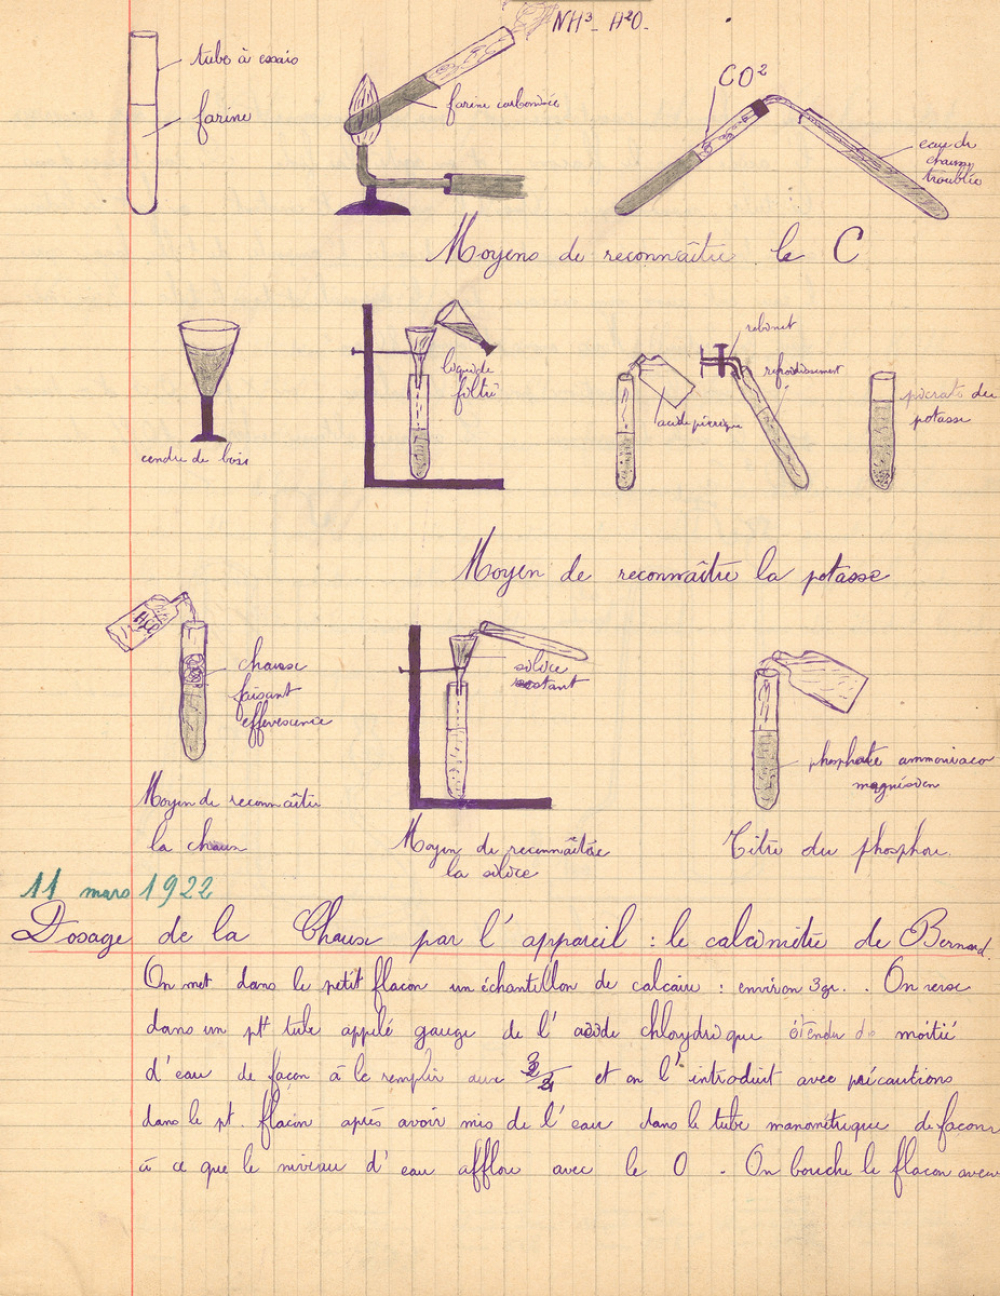 NH³ - H²O.
tube à essais
farine
farine carbonisée
CO²
eau de
chaux
troublée
Moyens de reconnaître le C
cendre de bois
liquide
filtré
acide picrique
robinet
refroidissement
picrate de
potasse
Moyen de reconnaître la potasse
HCl
chaux
faisant
effervescence
silice
restant
phosphate ammoniaco
magnésien
Moyen de reconnaître
la chaux
Moyen de reconnaître
la silice
Titre du phosphore.
11 mars 1922
Dosage de la Chaux par l'appareil : le calcimètre de Bernard.
On met dans le petit flacon un échantillon de calcaire : environ 3gr. . On verse
dans un pt tube appelé gauge de l'acide chloydrique étendu de moitié
d'eau de façon à le remplir aux et on l'introduit avec précautions
dans le pt. flacon après avoir mis de l'eau dans le tube manométrique de façon
à ce que le niveau d'eau affleure avec le 0 . On bouche le flacon avec